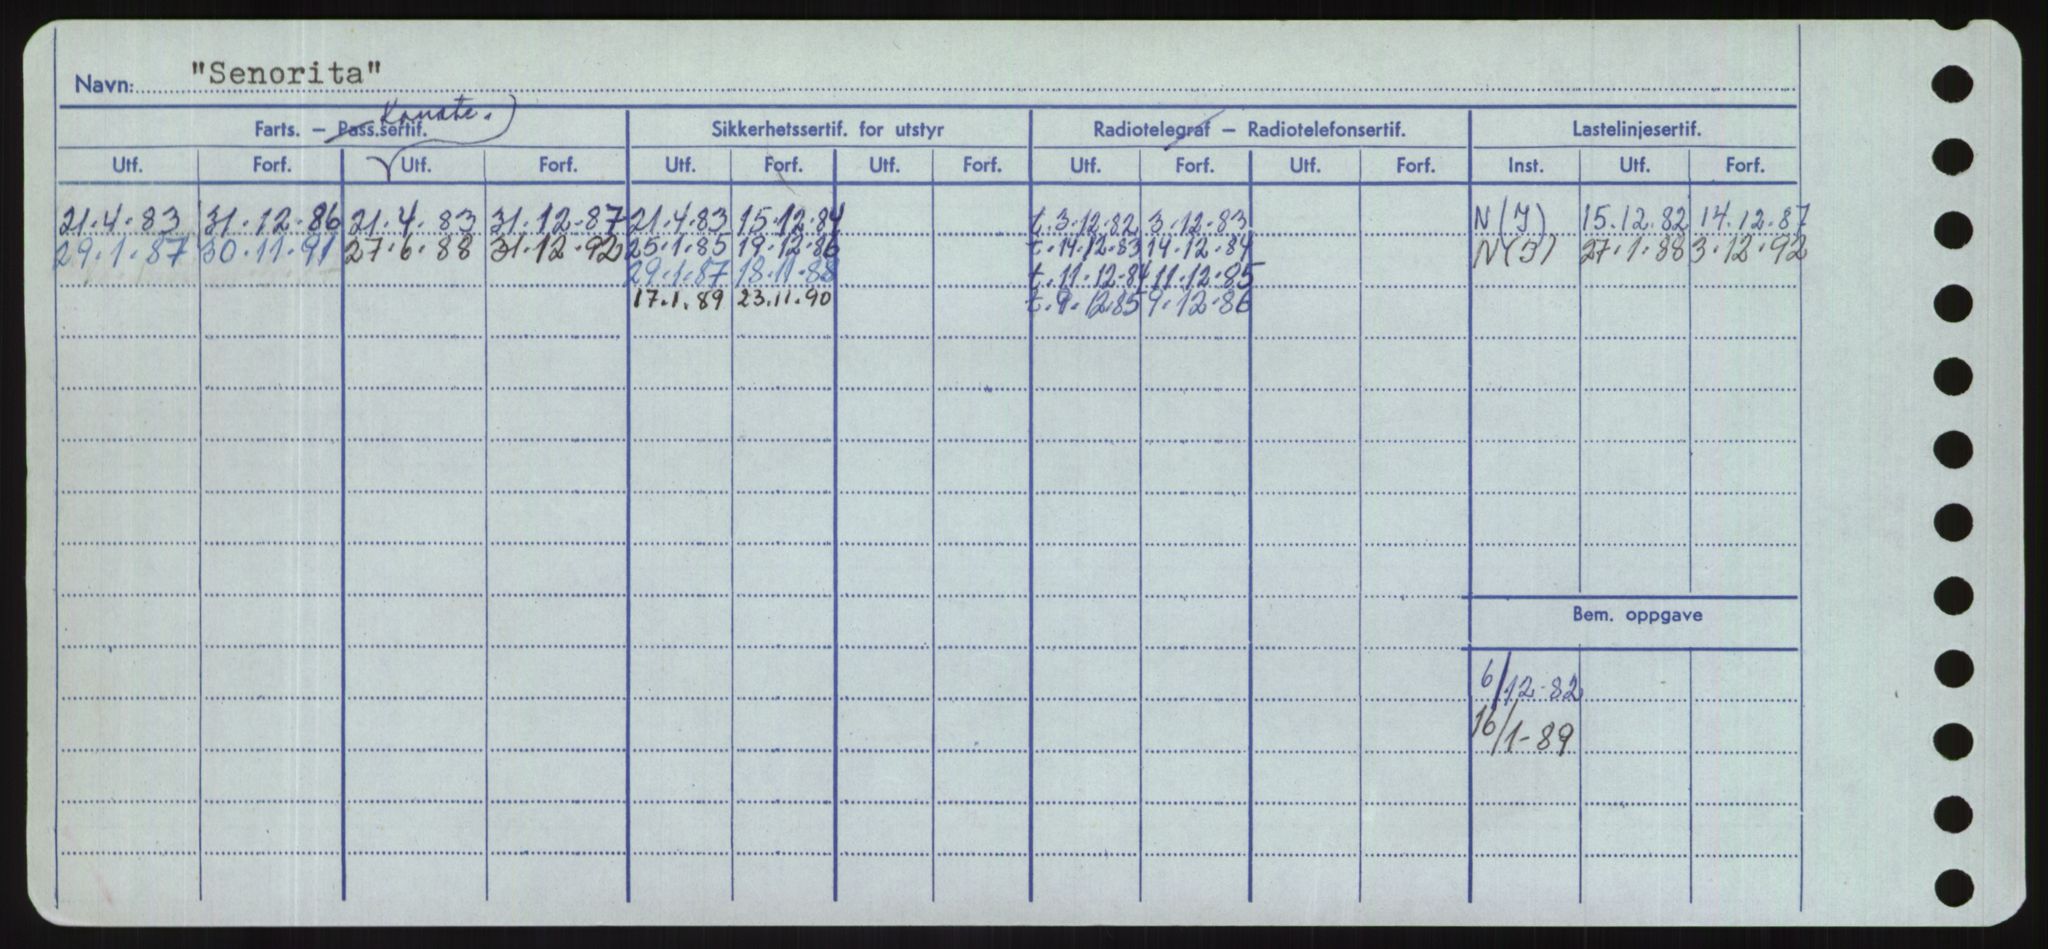 Navn: "Senorita"
Farts. – Pass.sertif. Sikkerhetssertif. for utstyr Radiotelegraf – Radiotelefonsertif. Lastelinjesertif.
Utf. Forf. Utf. Forf. Utf. Forf. Utf. Forf. Utf. Forf. Utf. Forf. Inst. Utf. Forf.
21.4.83 31.12.86 21.4.83 31.12.87 21.4.83 15.12.84 t.3.12.82 3.12.83 N(J) 15.12.82 14.12.87
29.1.87 30.11.91 27.6.88 31.12.92 25.1.85 19.12.86 t.14.12.83 14.12.84 N(J) 27.1.88 3.12.92
29.1.87 18.11.88 t.11.12.84 11.12.85
17.1.89 23.11.90 t.9.12.85 9.12.86
Bem. oppgave
6/12-82
16/1-89